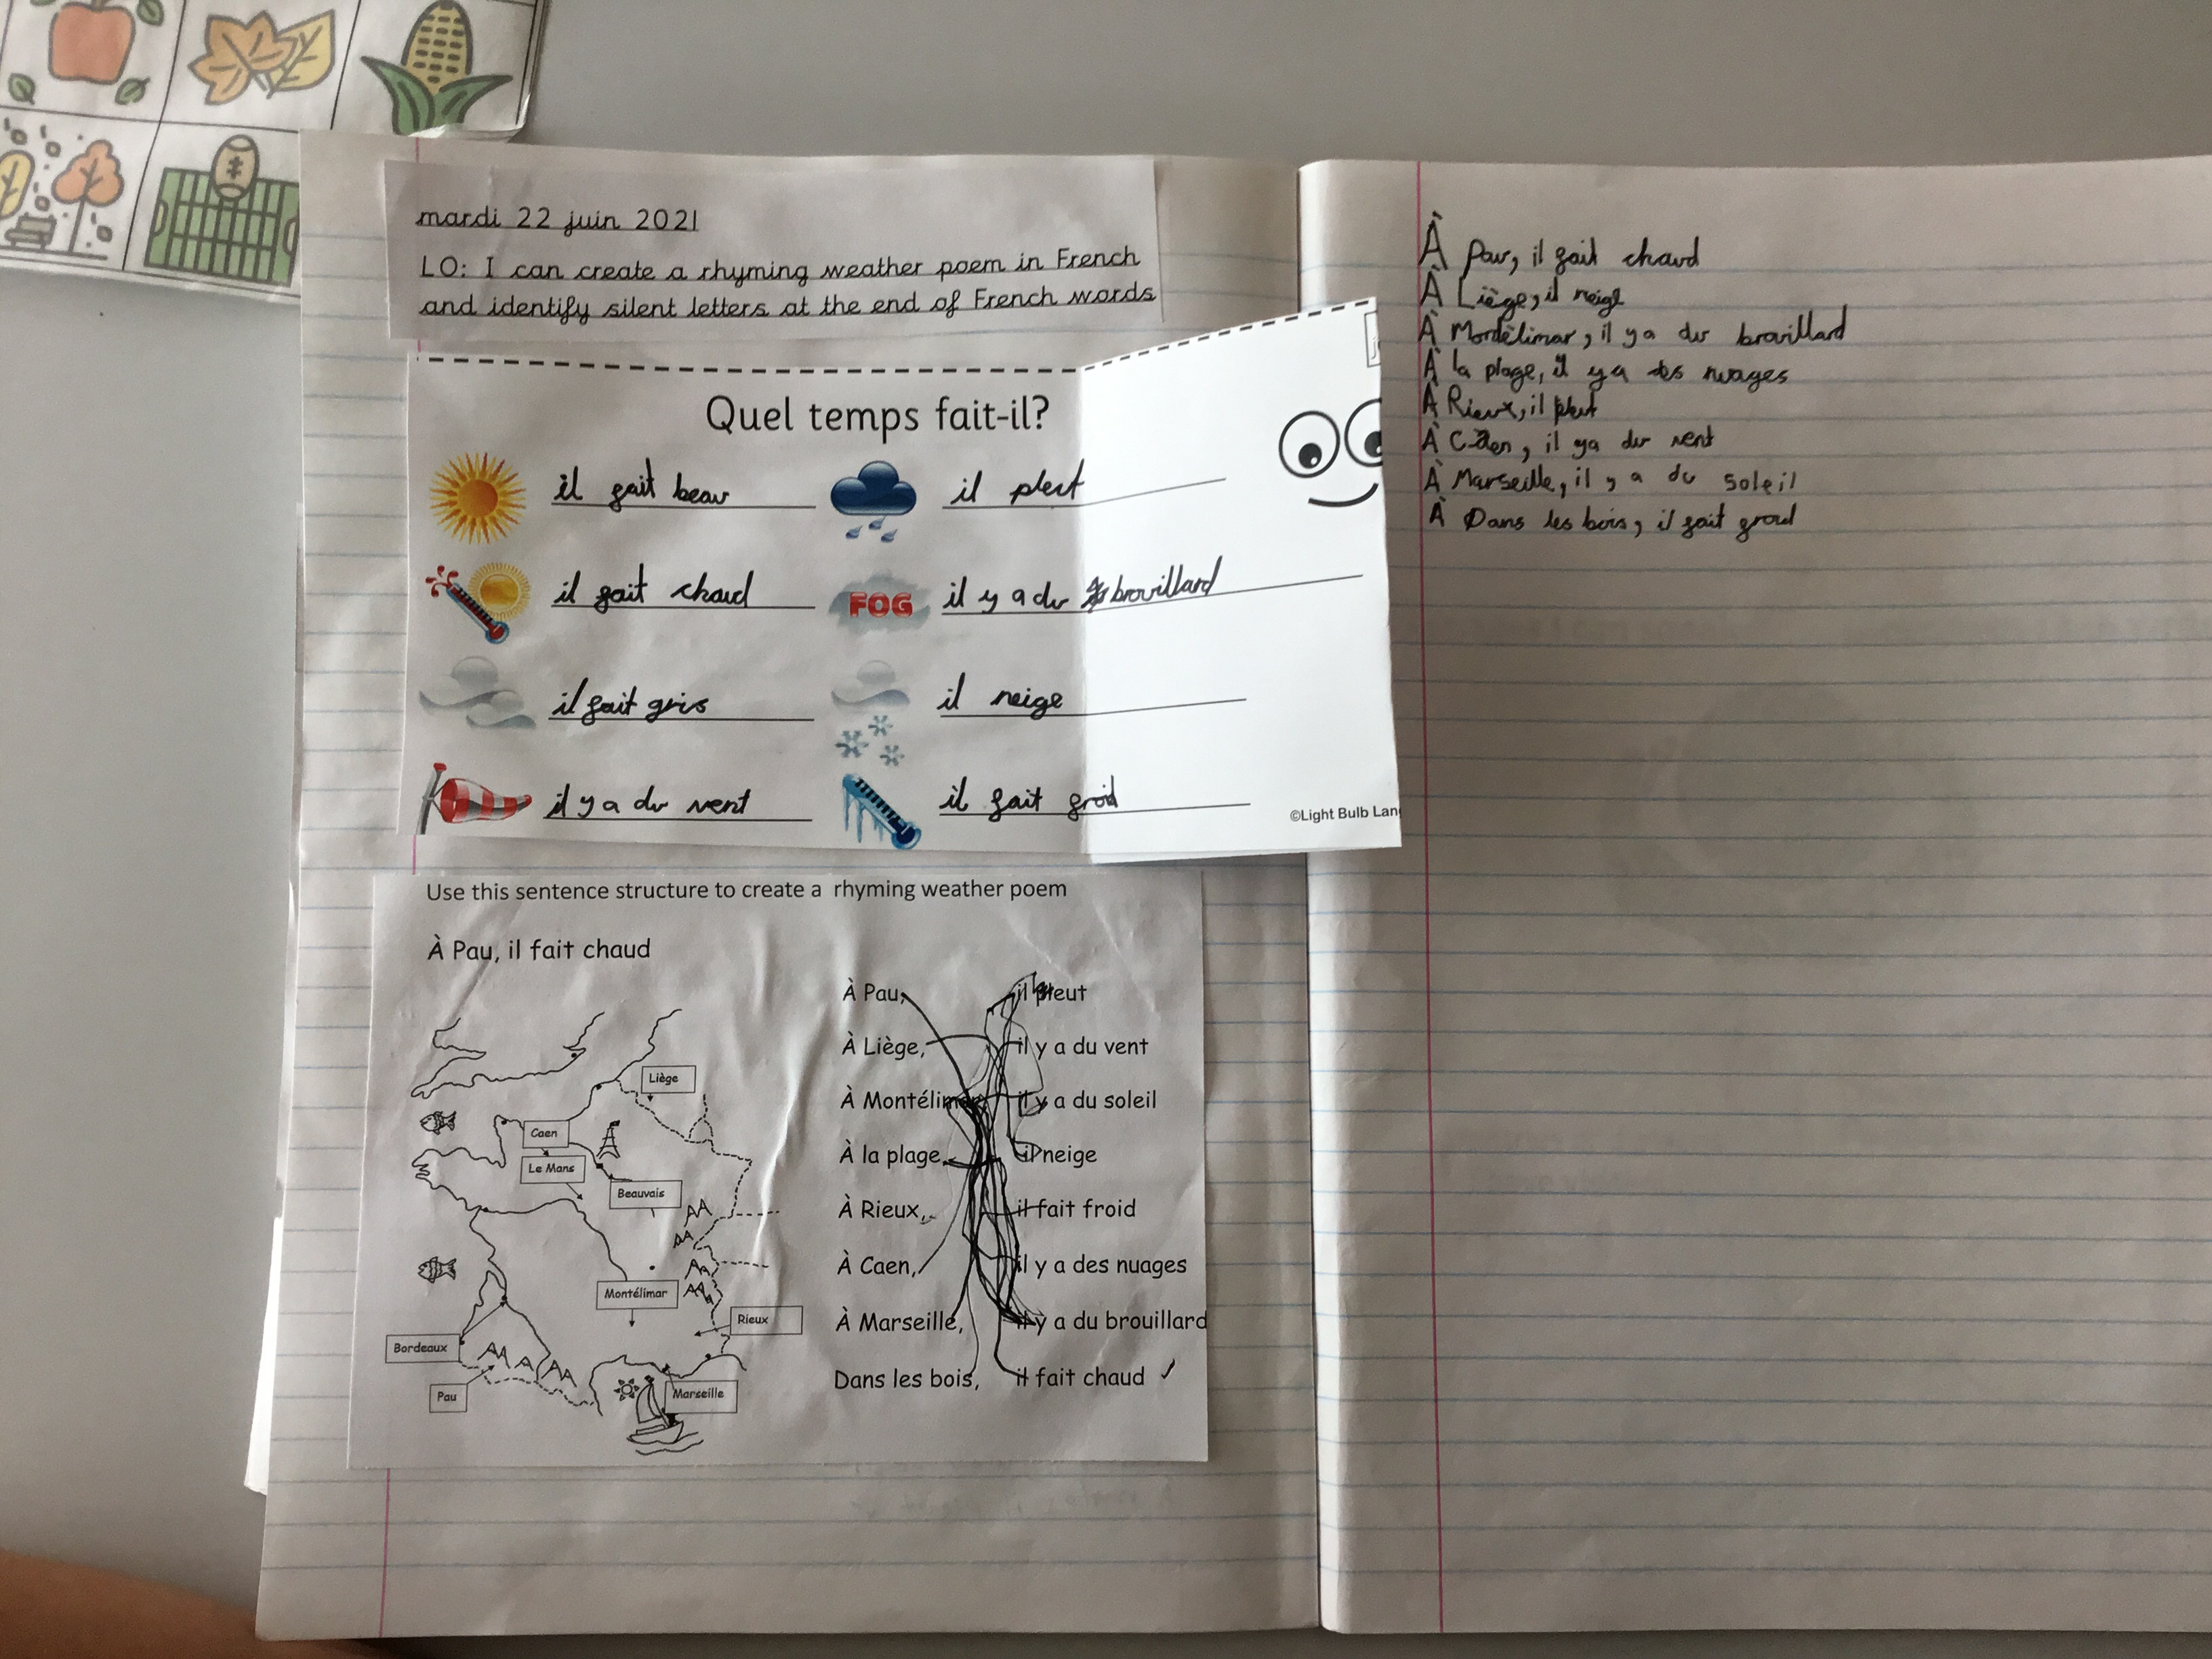 mardi 22 juin 2021
LO: I can create a rhyming weather poem in French
and identify silent letters at the end of French words
Quel temps fait-il?
il fait beau
il pleut
il fait chaud
FOG
il y a du brouillard
il fait gris
il neige
il y a du vent
il fait froid
©Light Bulb Lan
Use this sentence structure to create a rhyming weather poem
À Pau, il fait chaud
Liège
Caen
Le Mans
Beauvais
Montélimar
Rieux
Bordeaux
Pau
Marseille
À Pau, il pleut
À Liège, il y a du vent
À Montélimar, il y a du soleil
À la plage, il neige
À Rieux, il fait froid
À Caen, il y a des nuages
À Marseille, il y a du brouillard
Dans les bois, il fait chaud
À Pau, il fait chaud
À Liège, il neige
À Montélimar, il y a du brouillard
À la plage, il y a des nuages
À Rieux, il pleut
À Caen, il y a du vent
À Marseille, il y a du soleil
À Dans les bois, il fait froid